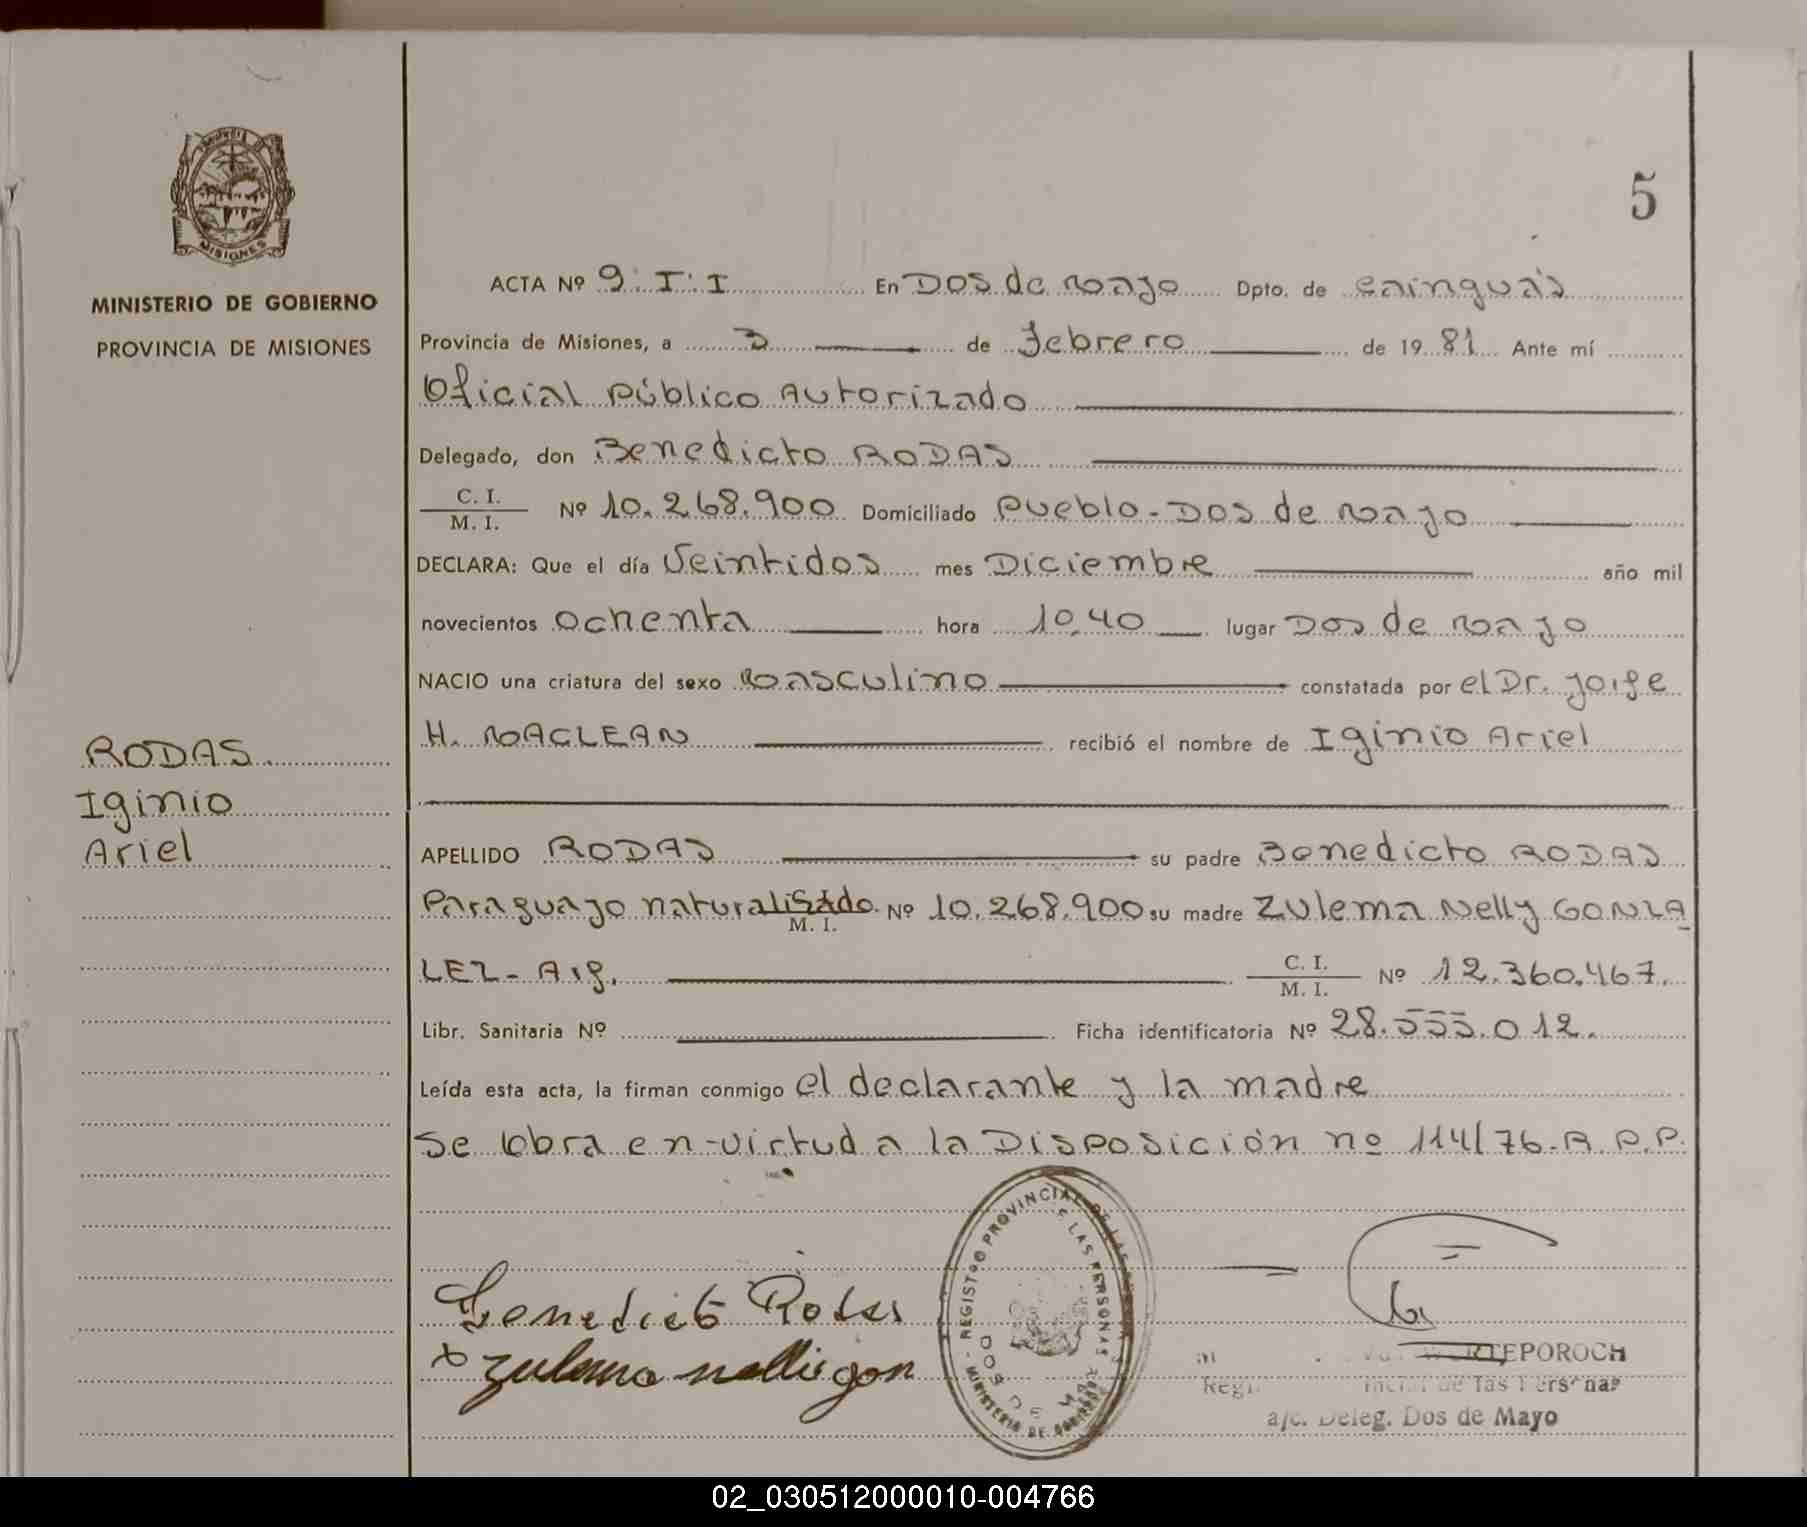 5
MISIONES
MINISTERIO DE GOBIERNO
PROVINCIA DE MISIONES
RODAS
Iginio
Ariel
ACTA Nº 9. I. I En Dos de Mayo Dpto. de Cainguás
Provincia de Misiones, a 3 de Febrero de 1981 Ante mí
Oficial Público Autorizado
Delegado, don Benedicto RODAS
C. I.
M. I. Nº 10.268.900 Domiciliado Pueblo - Dos de Mayo
DECLARA: Que el día Veintidos mes Diciembre año mil
novecientos ochenta hora 10,40 lugar Dos de Mayo
NACIO una criatura del sexo Masculino constatada por el Dr. Jorge
H. MACLEAN recibió el nombre de Iginio Ariel
APELLIDO RODAS su padre Benedicto RODAS
Paraguayo naturalizado C. I. M. I. Nº 10.268.900 su madre Zulema Nelly GONZA
LEZ - Arg. C. I. M. I. Nº 12.360.467.
Libr. Sanitaria Nº Ficha identificatoria Nº 28.555.012.
Leída esta acta, la firman conmigo el declarante y la madre
Se obra en virtud a la Disposición nº 114/76 - R.P.P.
Benedicto Rodas
Zulema nelli gon
REGISTRO PROVINCIAL DE LAS PERSONAS
MINISTERIO DE GOBIERNO
DOS DE
TEPOROCH
de las Personas
a/c. Deleg. Dos de Mayo
02_030512000010-004766